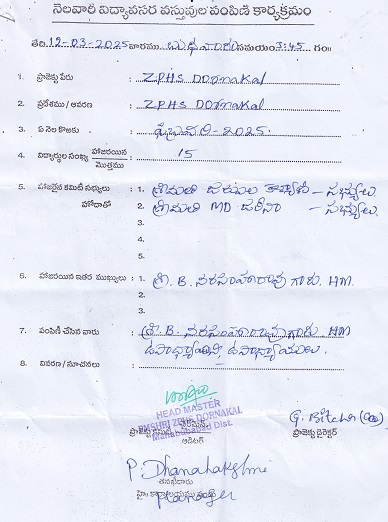 నెలవారీ విద్యావసర వస్తువుల పంపిణీ కార్యక్రమం
తేది. 12-03-2025 వారము. బుధవారం సమయం 3:45 గం॥
1. ప్రాజెక్టు పేరు : ZPHS DORNAKAL
2. ప్రదేశము / ఆవరణ : ZPHS DORNAKAL
3. ఏ నెల కొఱకు : ఫిబ్రవరి-2025.
4. విద్యార్థుల సంఖ్య హాజరయిన / మొత్తము : 15
5. హాజరైన కమిటీ సభ్యులు : 1. శ్రీమతి కళ్యాణి - సభ్యులు
హోదాతో 2. శ్రీమతి MD జరీనా - సభ్యులు.
3.
4.
5.
6. హాజరయిన ఇతర ముఖ్యులు : 1. శ్రీ. B. నరసింహారావు గారు. HM.
2.
3.
7. పంపిణీ చేసిన వారు : శ్రీ. B. నరసింహారావు గారు. HM
ఉపాధ్యాయిని, ఉపాధ్యాయులు.
8. వివరణ / సూచనలు :
HEAD MASTER
PMSHRI ZPHS DORNAKAL
Mahabubabad Dist.
ప్రాజెక్టు కమిటీ చైర్మన్
ఆడిటర్
ప్రాజెక్టు డైరెక్టర్
P. Dhanalakshmi
తనిఖీదారు
Manager